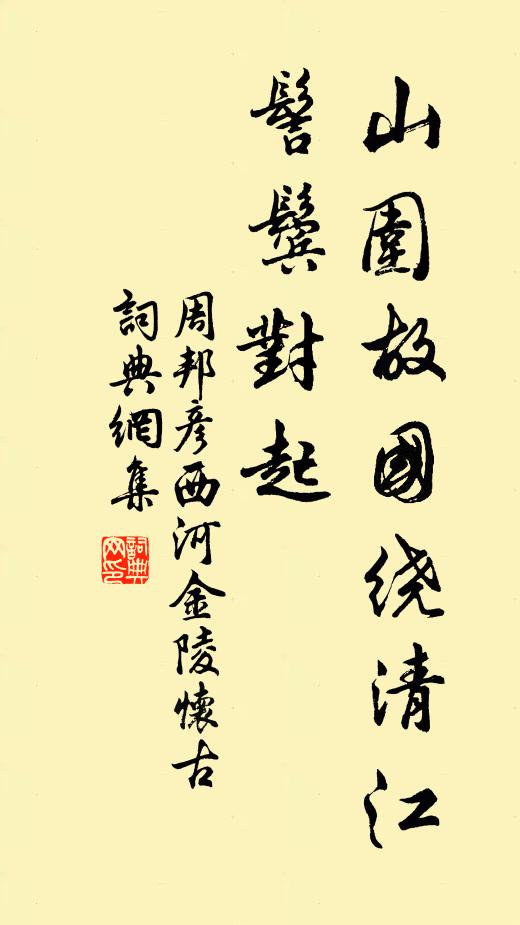 山圍故國绕清江
髻鬟對起
周邦彦西河金陵懷古
詞典網集
詞典网印